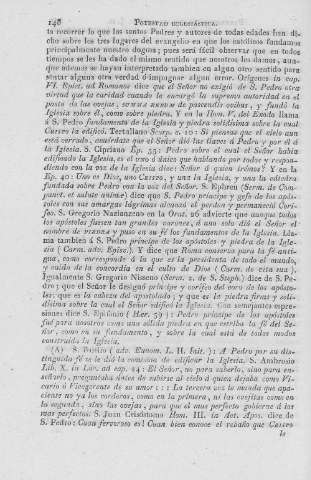 146 POTESTAD ECLESIÁSTICA.
ta recorrer lo que los santos Padres y autores de todas edades han di-
cho sobre los tres lugares del evangelio en que los católicos fundamos
principalmente nuestro dogma; pues será fácil observar que en todos
tiempos se les ha dado el mismo sentido que nosotros les damos, aun-
que además se hayan interpretado tambien en algun otro sentido para
sentar alguna otra verdad ó impugnar algun error. Orígenes in cap.
VI. Epist. ad Romanos dice que el Señor no exigió de S. Pedro otra
virtud que la caridad cuando le entregó la suprema autoridad en el
pasto de las ovejas, summa rerum de pascendis ovibus, y fundó la
Iglesia sobre él, como sobre piedra. Y en la Hom. V. del Exodo llama
á S. Pedro fundamento de la Iglesia y piedra solidísima sobre la cual
Cristo la edificó. Tertuliano Scorp. c. 10: Si piensas que el cielo aun
está cerrado, acuérdate que el Señor dió las llaves á Pedro y por él á
la Iglesia. S. Cipriano Ep. 55: Pedro sobre el cual el Señor habia
edificado la Iglesia, es el uno ó único que hablando por todos y respon-
diendo con la voz de la Iglesia dice: Señor á quien irémos? Y en la
Ep. 40: Uno es Dios, uno Cristo, y una la Iglesia, y una la cátedra
fundada sobre Pedro con la voz del Señor. S. Ephren (Serm. de Com-
punct. et salute anima) dice que S. Pedro príncipe y gefe de los após-
toles con sus amargas lágrimas alcanzó el perdon y permaneció Cori-
feo. S. Gregorio Nazianzeno en la Orat. 26 advierte que aunque todos
los apóstoles fuesen grandes varones, á uno solo dió el Señor el
nombre de piedra y puso en su fé los fundamentos de la Iglesia. Lla-
ma tambien á S. Pedro príncipe de los apóstoles y piedra de la Igle-
sia
Igualmente S. Gregorio Niseno (Serm. 2. de S. Steph.) dice de S. Pe-
dro; que el Señor le designó príncipe y corifeo del coro de los apósto-
les: que es la cabeza del apostolado; y que es la piedra firme y soli-
dísima sobre la cual el Señor edificó la Iglesia. Con semejantes espre-
siones dice S. Epifanio (Her. 59): Pedro príncipe de los apóstoles
fué para nosotros como una sólida piedra en que estriba la fé del Se-
ñor, como en su fundamento, y sobre la cual está de todos modos
construida la Iglesia.
S. Basilio Lib. II.
A Pedro por su dis-
tinguida fé se le dió la comision de edificar la Iglesia. S. Ambrosio
Lib. X. in Luc. ad cap. 24: El Señor, no para saberlo, sino para en-
señarlo, preguntaba antes de subirse al cielo á quien dejaba como Vi-
cario ó Vicegerente de su amor ::: La tercera vez le manda que apa-
ciente no ya los corderos, como en la primera, ni las ovejitas como en
la segunda, sino las ovejas, para que el mas perfecto gobierne á los
mas perfectos. S. Juan Crisóstomo Hom. III. in Act. Apos. dice de
S. Pedro: Cuan fervoroso es! Cuan bien conoce el rebaño que Cristo
le